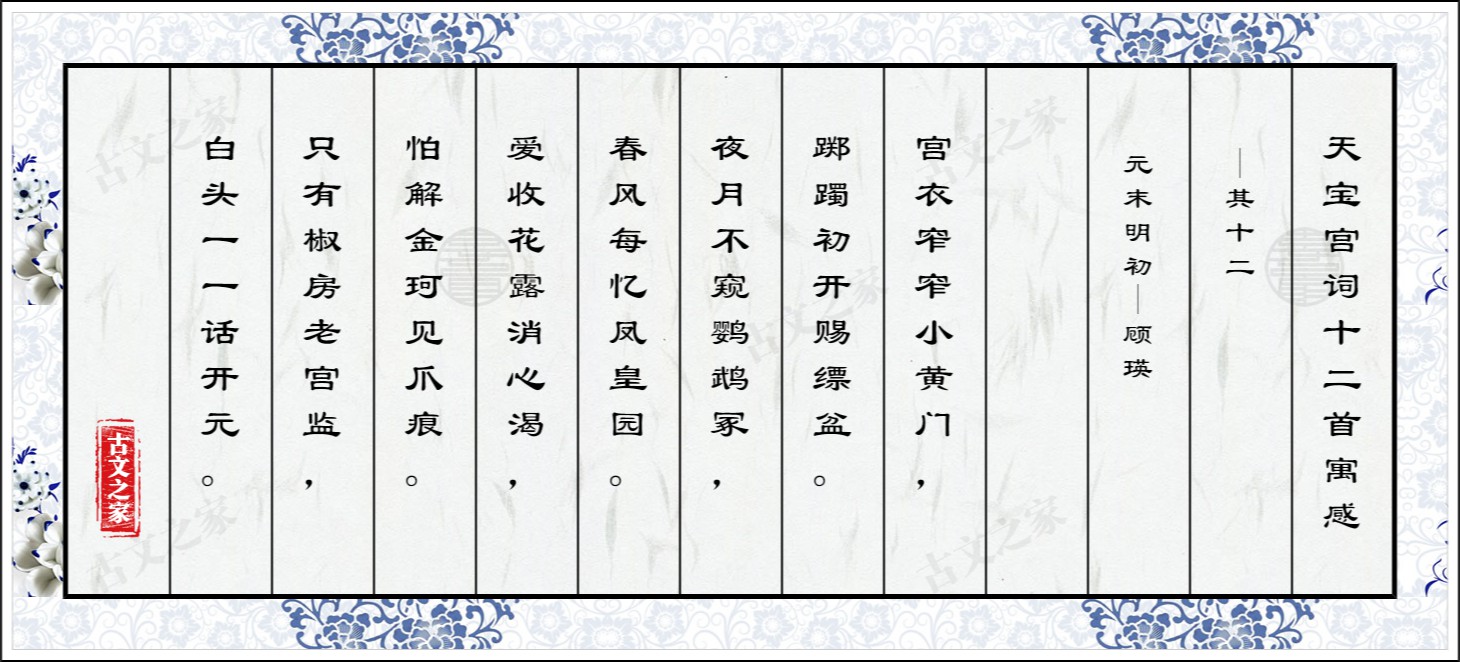 天宝宫词十二首寓感
—其十二
元末明初—顾瑛
宫衣窄窄小黄门，
踯躅初开赐缥盆。
夜月不窥鹦鹉冢，
春风每忆凤皇园。
爱收花露消心渴，
怕解金珂见爪痕。
只有椒房老宫监，
白头一一话开元。
古文之家